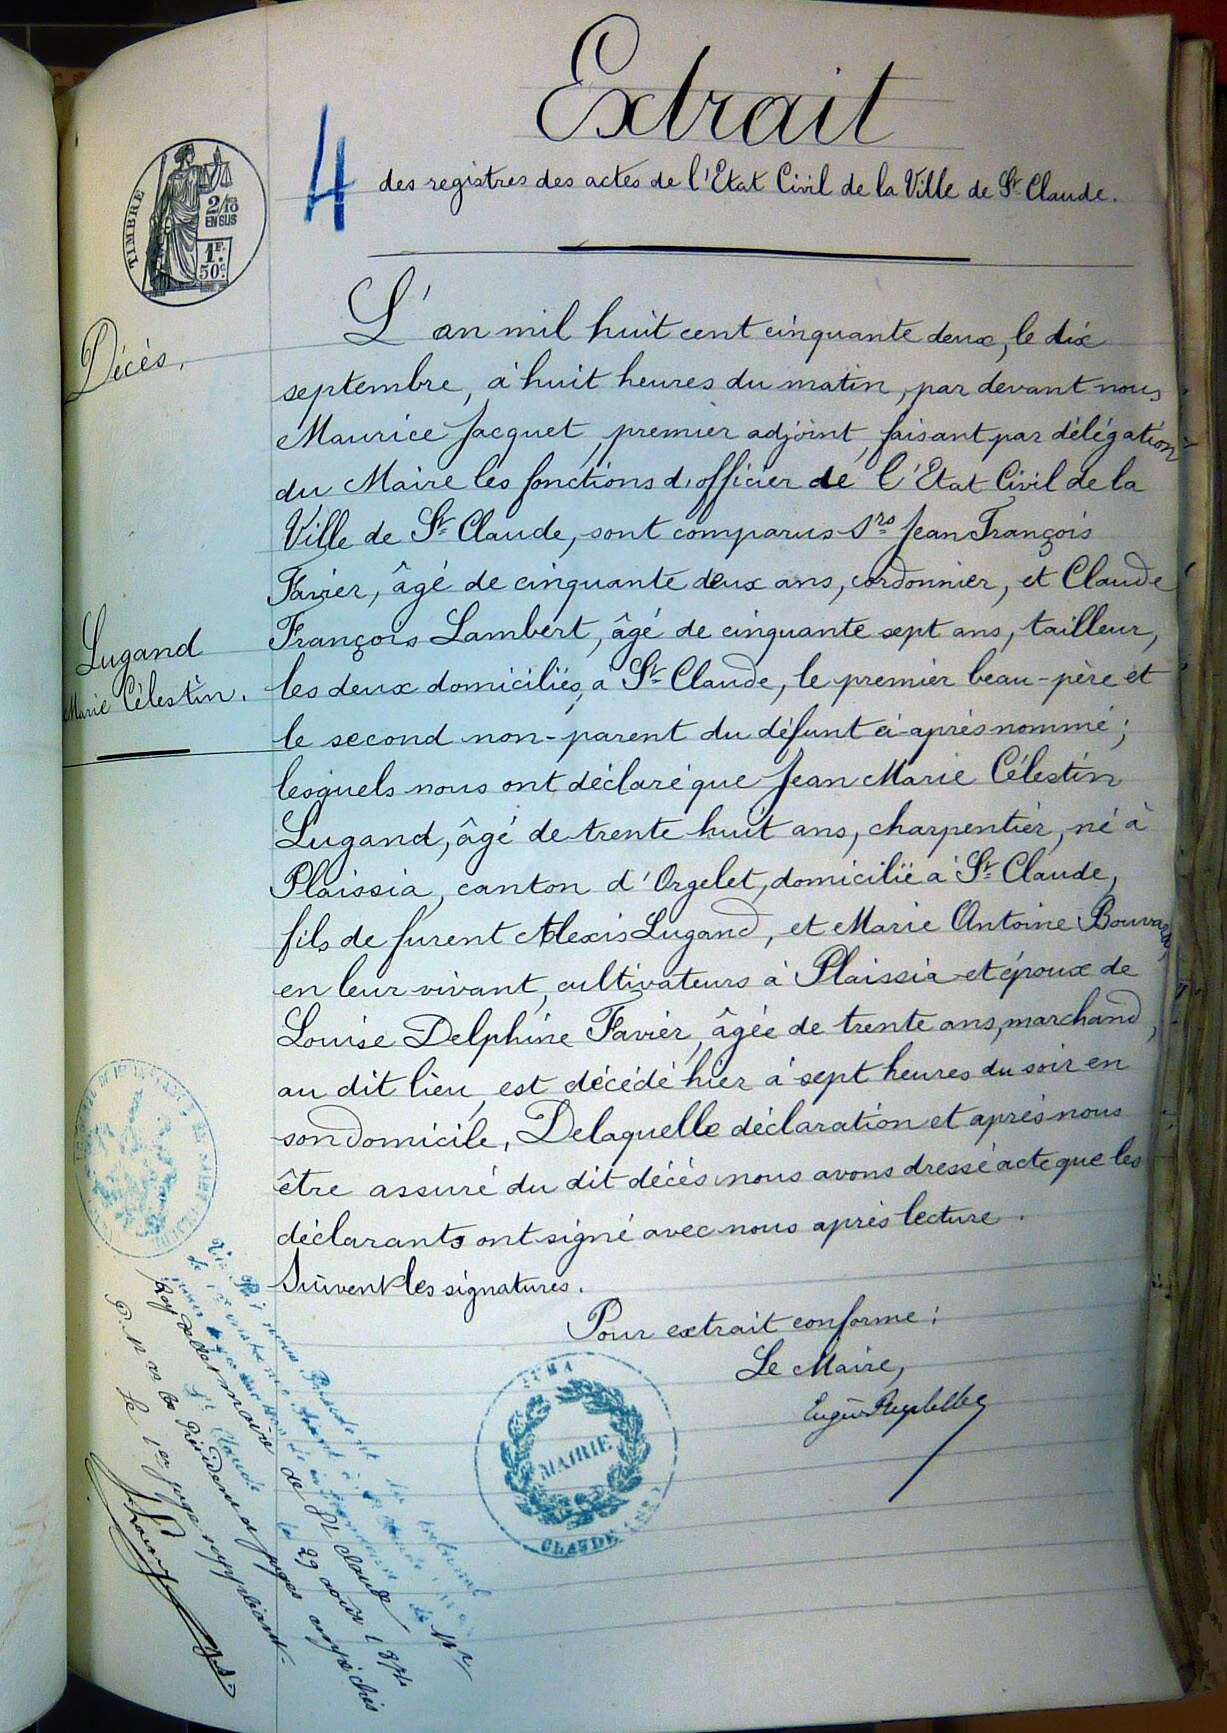 Extrait
4
des registres des actes de l'Etat Civil de la Ville de St Claude.
TIMBRE
2/10
EN SUS
1F.
50c
Décès.
L'an mil huit cent cinquante deux, le dix
septembre, à huit heures du matin, par devant nous
Maurice Jacquet, premier adjoint, faisant par délégation
du Maire les fonctions d'officier de l'Etat Civil de la
Ville de St Claude, sont comparus Srs Jean François
Favier, âgé de cinquante deux ans, cordonnier, et Claude
François Lambert, âgé de cinquante sept ans, tailleur,
Lugand
Marie Célestin.
les deux domiciliés, à St Claude, le premier beau-père et
le second non-parent du défunt ci-après nommé;
lesquels nous ont déclaré que Jean Marie Célestin
Lugand, âgé de trente huit ans, charpentier, né à
Plaissia, canton d'Orgelet, domicilié à St Claude,
fils de furent Alexis Lugand, et Marie Antoine
en leur vivant, cultivateurs à Plaissia et époux de
Louise Delphine Favier, âgée de trente ans, marchand,
au dit lieu, est décédé hier à sept heures du soir en
son domicile, Delaquelle déclaration et après nous
être assuré du dit décès nous avons dressé acte que les
déclarants ont signé avec nous après lecture.
Suivent les signatures.
Pour extrait conforme:
Le Maire,
MAIRIE
CLAUDE
de St Claude
le 29 août
P. M. le Président et juges empêchés
Le 1er juge suppléant